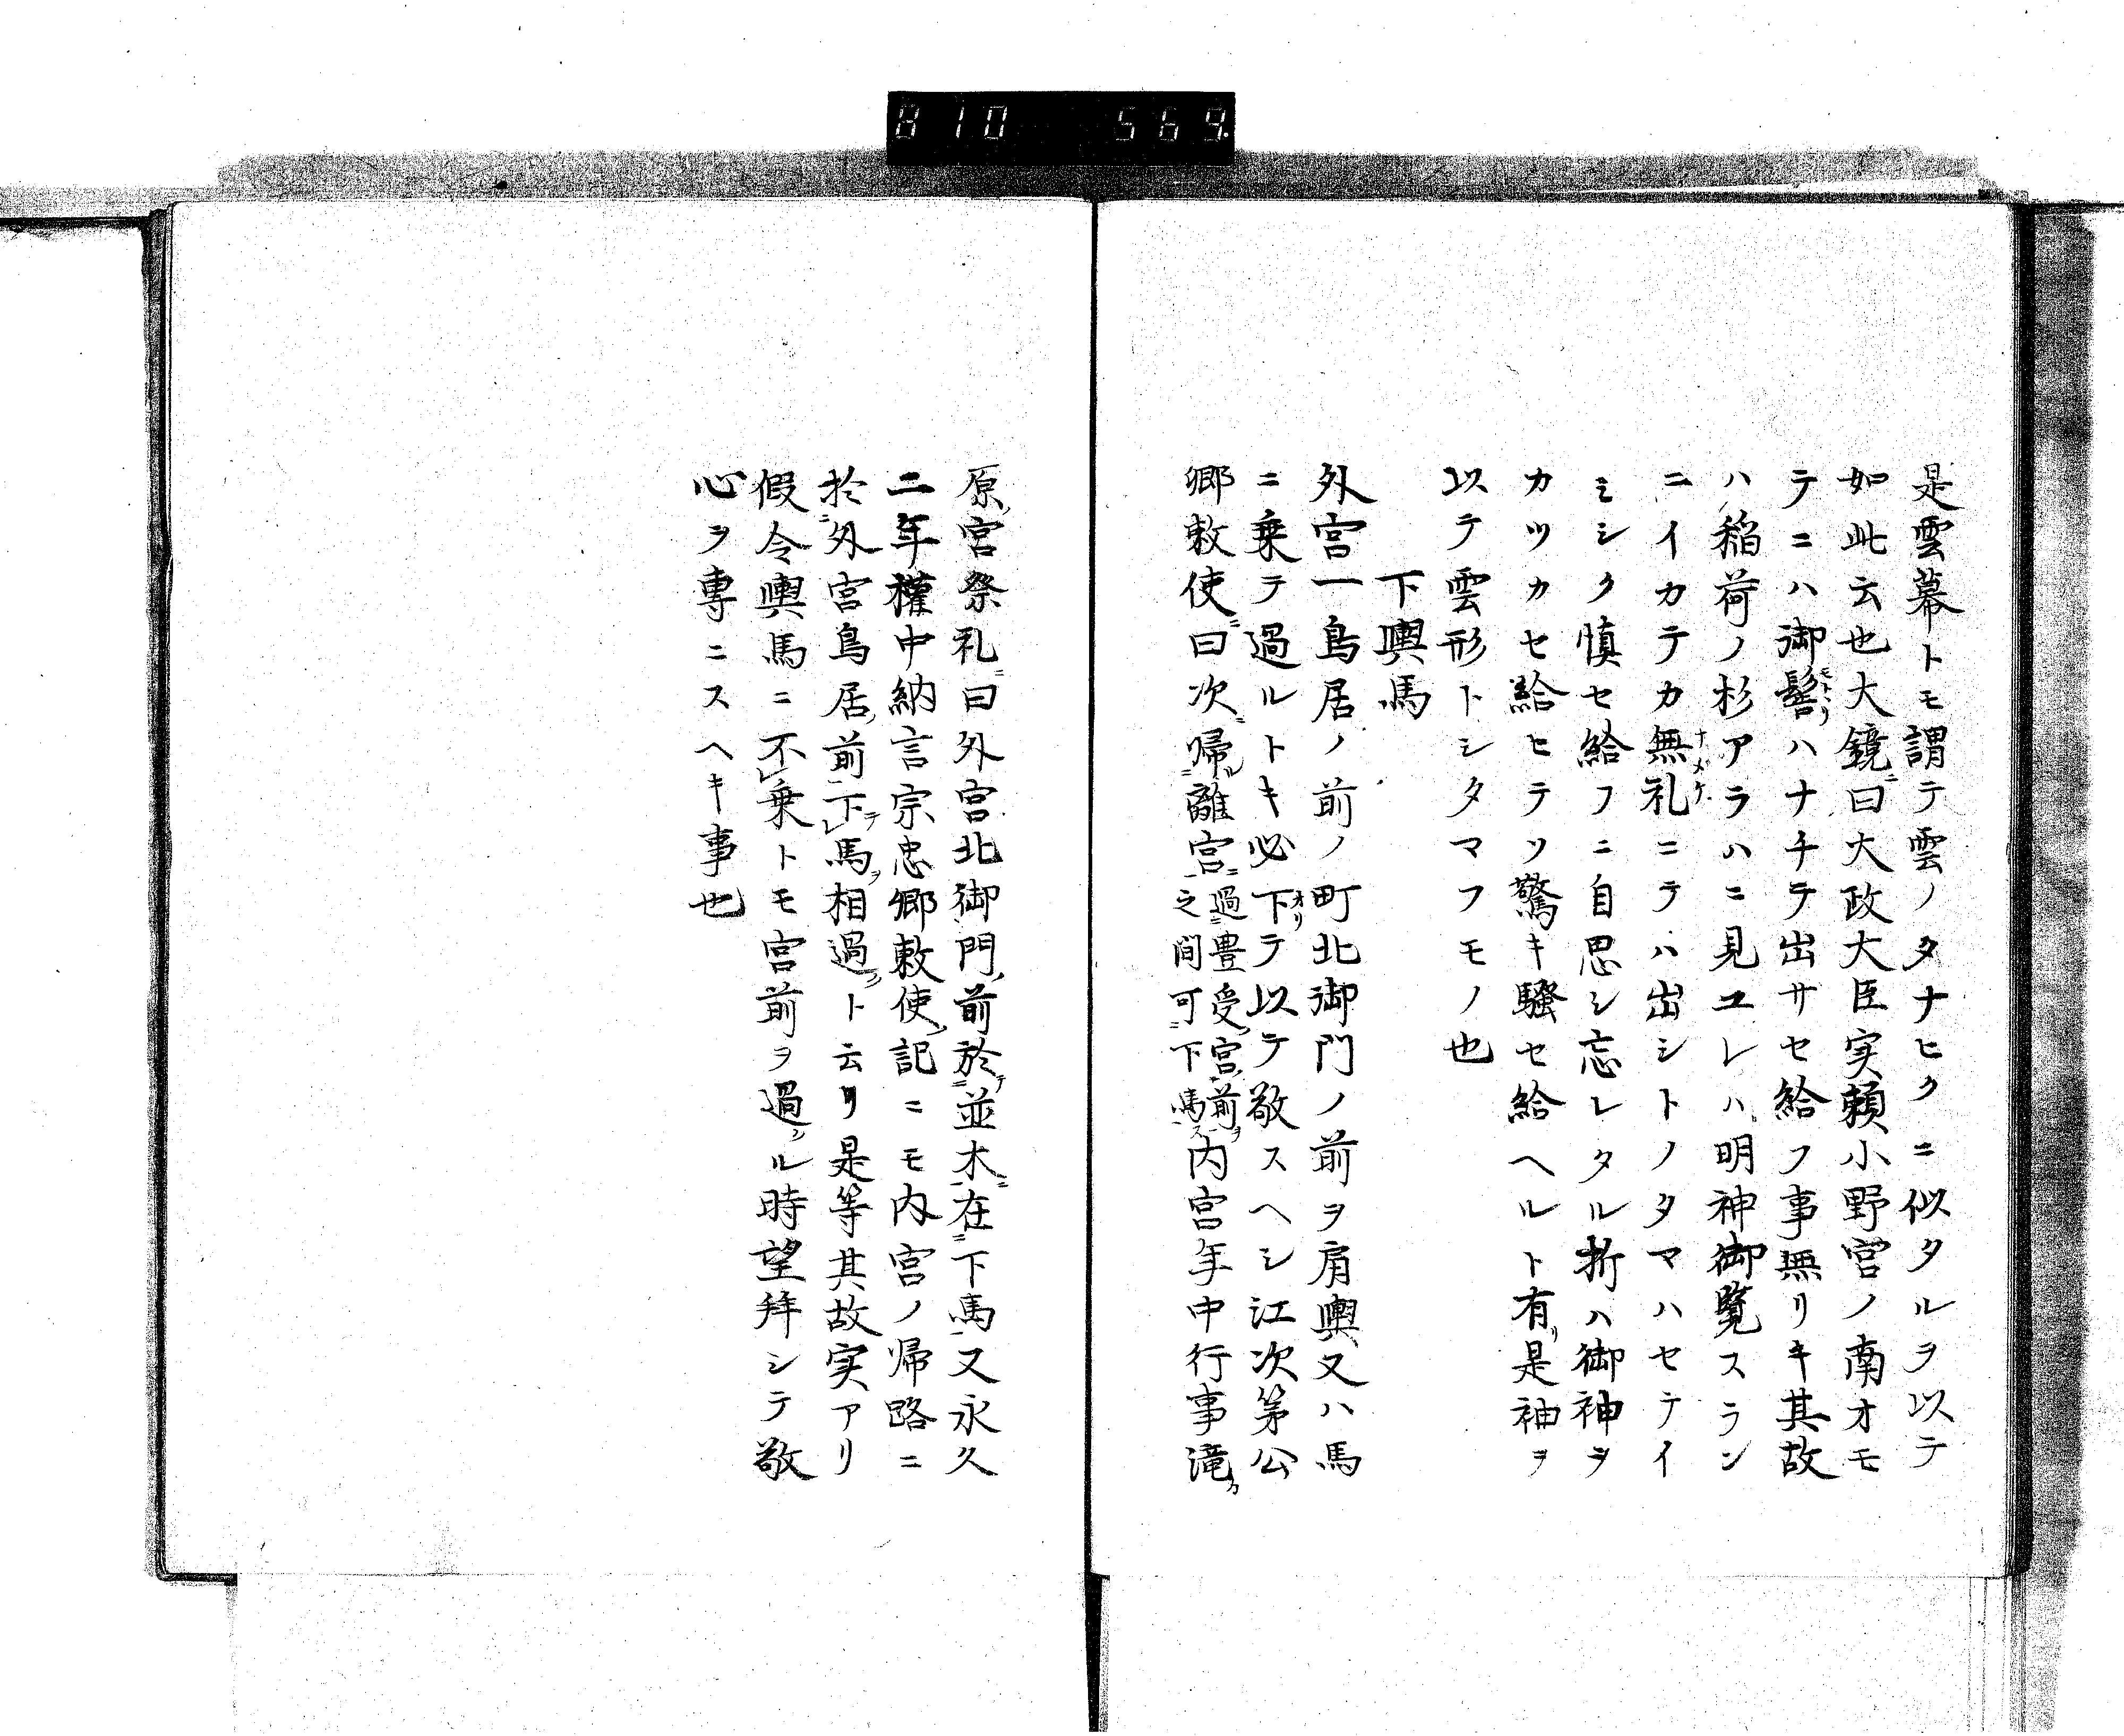 810 569.
是雲幕トモ謂テ雲ノタナヒクニ似タルヲ以テ
如此云也大鏡ニ曰大政大臣実頼小野宮ノ南オモ
テニハ御髻モトヽリハナチテ出サセ給フ事無リキ其故
ハ稲荷ノ杉アラハニ見ユレハ明神御覧スラン
ニイカテカ無礼ナメケニテハ出シトノタマハセテイ
ミシク慎セ給フニ自思シ忘レタル折ハ御神ヲ
カツカセ給ヒテソ驚キ騒セ給ヘルト有リ是袖ヲ
以テ雲形トシタマフモノ也
下輿馬
外宮一鳥居ノ前ノ町北御門ノ前ヲ肩輿又ハ馬
ニ乗テ過ルトキ必下オリテ以テ敬スヘシ江次第公
卿敕使ニ曰次ニ帰ル離宮ニ過ニ豊受ノ宮ノ前ヲ之間可下馬ス内宮年中行事滝カ
原ノ宮祭礼ニ曰外宮北御門ノ前於テ並木ニ在下馬又永久
二年權中納言宗忠卿敕使ノ記ニモ内宮ノ帰路ニ
於外宮鳥居ノ前下テ馬ヲ相過クト云リ是等其故実アリ
假令輿馬ニ不レ乗トモ宮前ヲ過クル時望拜シテ敬
心ヲ専ニスヘキ事也